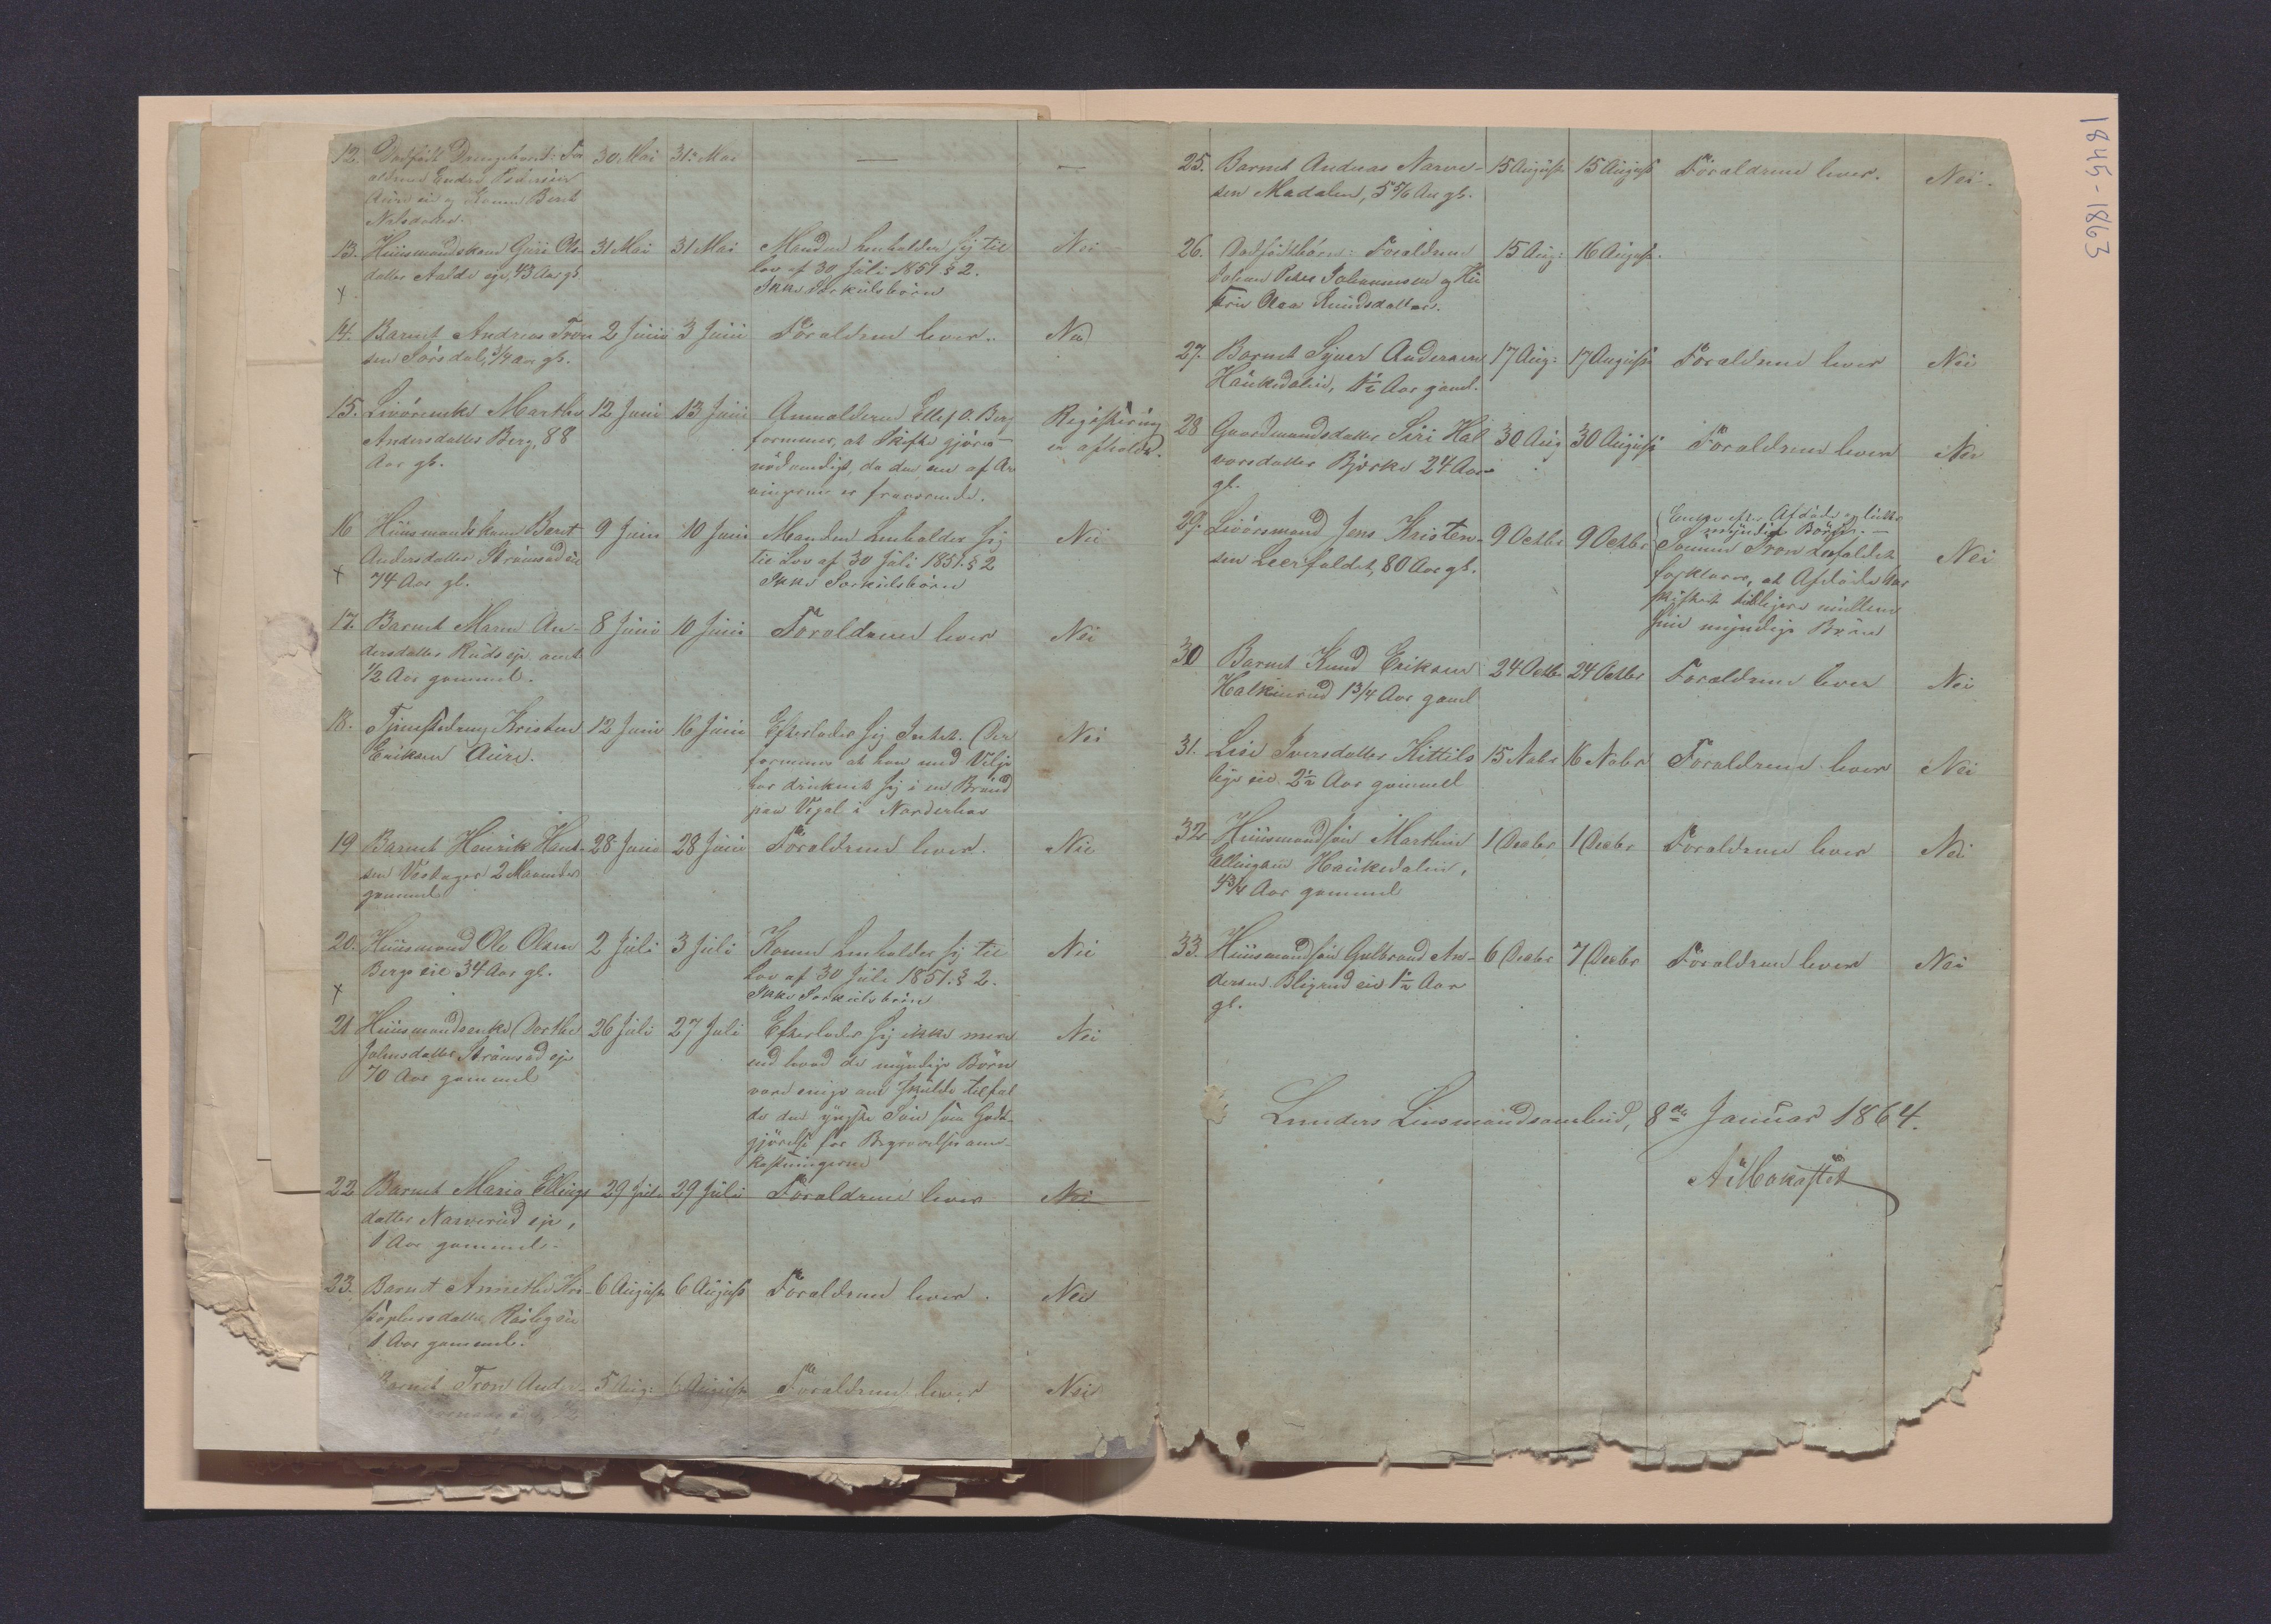 1845-1863
12. Dødfødt Drengebarn: For- 30. Mai 31. Mai — —
ældrene Endre
Aure eie og Konen Berit
Nilsdatter.
13. Huusmandskone Guri Ols- 31 Mai 31 Mai Manden henholder sig til Nei
datter Aalde eje, 43 Aar gl. Lov af 30 Juli 1851 § 2.
x Ikke Særkulsbörn
14. Barnet Andreas Tron- 2 Juni 3 Juni Forældrene lever. Nei
sen Sörsdal, 1/4 Aar gl.
15. Livörenke Marthe 12 Juni 13 Juni Anmelderen Ellef O. Berg Registrering
Andersdatter Berg, 88 formener, at Skifte gjöres er afholdt.
Aar gl. nödvendigt, da den ene af Ar-
vingerne er fraværende.
16 Huusmandskone Berit 9 Juni 10 Juni Manden henholder sig Nei
Andersdatter Strömsodeie til Lov af 30 Juli 1851 § 2
x 74 Aar gl. Ikke Særkulsbörn
17. Barnet Maren An- 8 Juni 10 Juni Forældrene lever Nei
dersdatter Ruds eje
1/2 Aar gammel.
18. Tjenestedreng Kristen 12 Juni 16 Juni Efterlader sig Intet. (Der Nei
Eriksen Aure. formenes at han med Vilje
har druknet sig i en Brönd
paa Vegal i Norderhov
19 Barnet Henrik Hans- 28 Juni 28 Juni Forældrene lever. Nei
sen 2 Maaneder
gammel
20. Huusmand Ole Olsen 2 Juli 3 Juli Konen henholder sig til Nei
Bergseie 34 Aar gl. Lov af 30 Juli 1851. § 2.
x Ikke Særkulsbörn
21 Huusmandsenke Dorthe 26 Juli 27 Juli Efterlader sig ikke mere Nei
Johnsdatter Strömsod eje end hvad de myndige Börn
70 Aar gammel vare enige om skulde tilfal-
de den yngste Sön som Godt-
gjörelse for Begravelsesom-
kostningerne
22 Barnet Maria Ellings- 29 Juli 29 Juli Forældrene lever Nei
datter Narverud eje,
1 Aar gammel.
23. Barnet Annethe Kri- 6 August 6 August Forældrene lever. Nei
stophersdatter
1 Aar gammel.
Barnet Tron Ander- 5 Aug: 6 August Forældrene lever Nei
25. Barnet Andreas Narve- 15 August 15 August Forældrene lever. Nei.
sen Madalen, 5 5/6 Aar gl.
26. Dödfödtbarn: Forældrene 15 Aug: 16 August.
Johan Peter Johannesen og Hu-
stru Olea Knudsdatter.
27. Barnet Syver Andersen 17 Aug: 17 August Forældrene lever Nei
Haukedalen, 1 1/2 Aar gaml.
28 Gaardmandsdatter Siri Hal- 30 Aug 30 August Forældrene lever Nei
vorsdatter Bjerke 24 Aar
gl.
29. Livörsmand Jens Kristen- 9 Octbr 9 Octbr (Enke efter Afdöde og lutter
sen Leerfaldet, 80 Aar gl. myndige Börn. —
Sönnen Tron Leerfaldet Nei
forklarer, at Afdöde har
skiftet tidligere mellem
sine myndige Börn
30 Barnet Knud Eriksen 24 Octbr 24 Octbr Forældrene lever Nei
Halkinrud 1 3/4 Aar gaml
31. Lise Iversdatter Kittils- 15 Novbr 16 Novbr Forældrene lever Nei
eie 2 1/2 Aar gammel
32 Huusmandssön Marthin 1 Decbr 1 Decbr Forældrene lever Nei
Ellingsen Haukedalen,
4 3/4 Aar gammel
33. Huusmandssön Gulbrand An- 6 Decbr 7 Decbr Forældrene lever Nei
dersen Bligrud eie 1 1/2 Aar
gl.
Lunders Lensmandsombud, 8de Januar 1864.